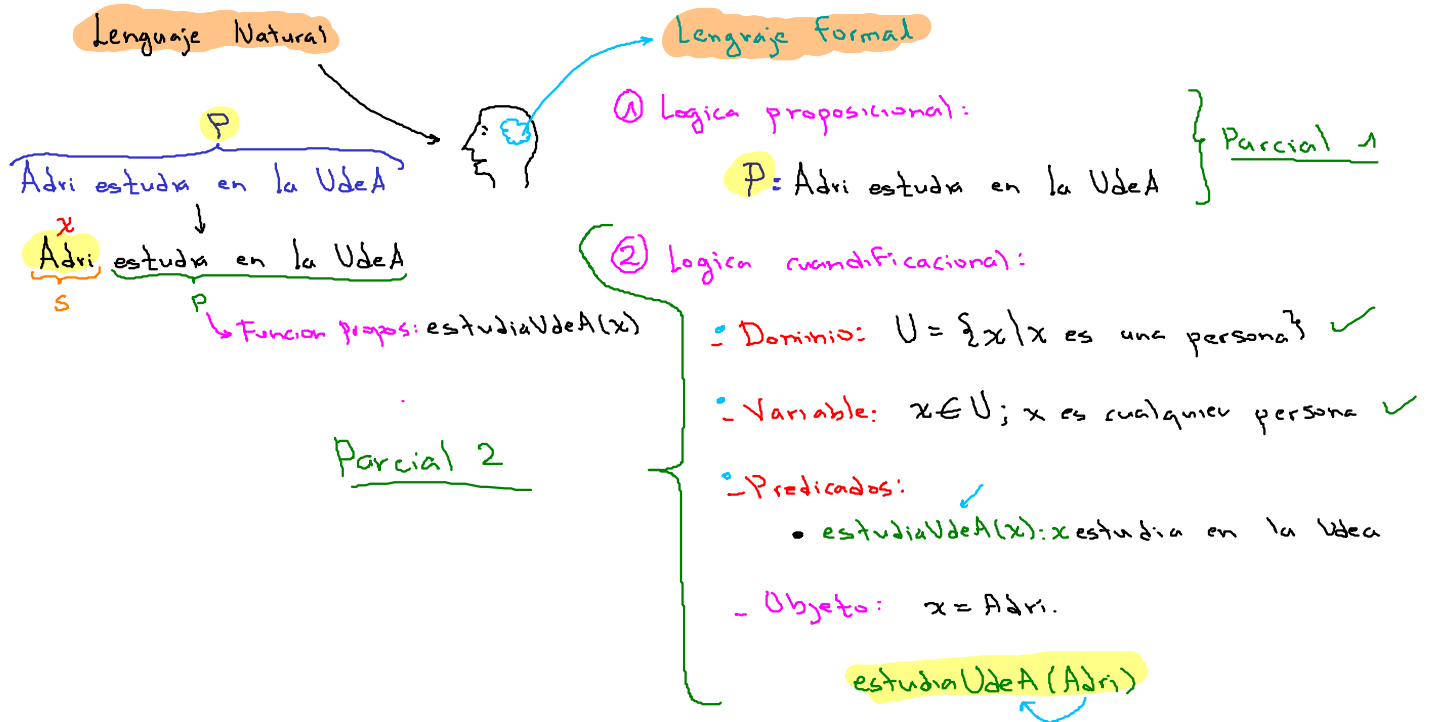 Lenguaje Natural
P
Adri estudia en la UdeA
x
Adri estudia en la UdeA
S
P
Funcion propos: estudiaUdeA(x)
Parcial 2
Lenguaje Formal
① Logica proposicional:
P: Adri estudia en la UdeA
Parcial 1
② Logica cuandificacional:
- Dominio: U = {x\x es una persona} ✓
- Variable: x∈U; x es cualquier persona ✓
- Predicados:
• estudiaUdeA(x): x estudia en la Udea
- Objeto: x = Adri.
estudiaUdeA(Adri)